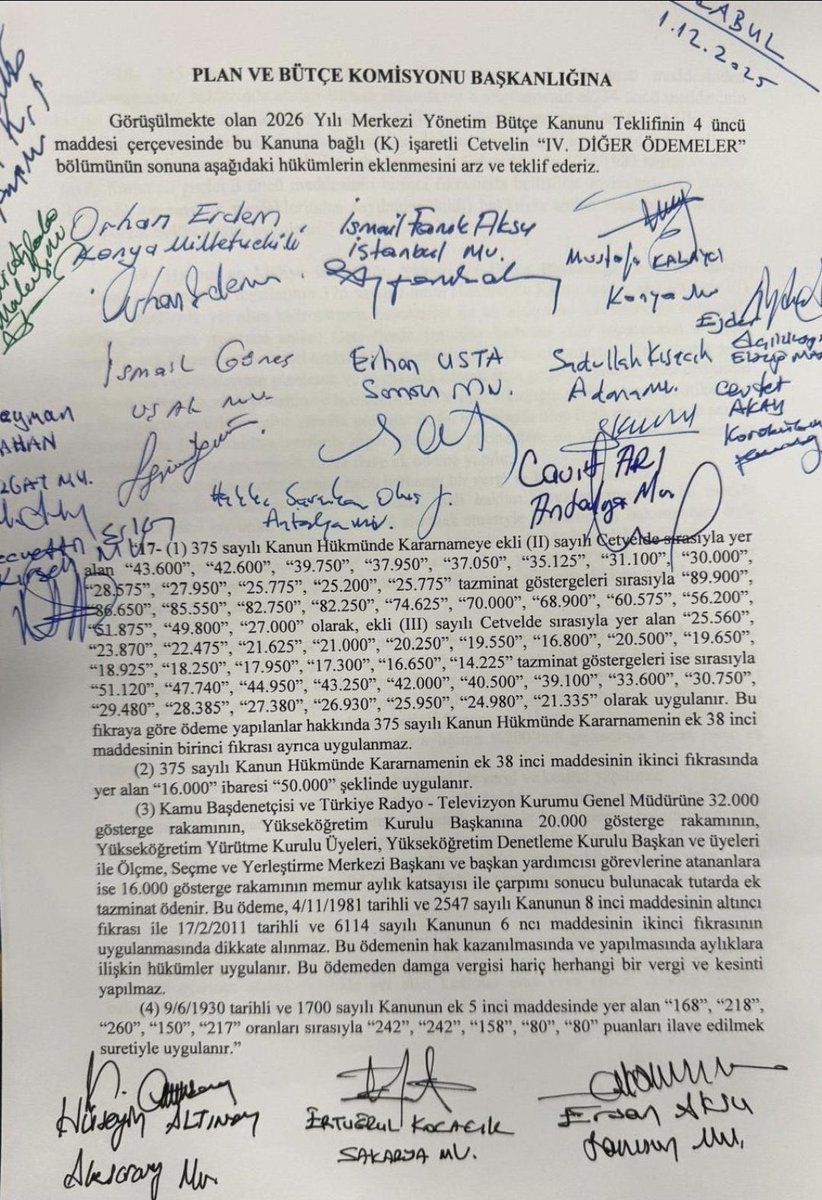 KABUL
1.12.2025
PLAN VE BÜTÇE KOMİSYONU BAŞKANLIĞINA
Görüşülmekte olan 2026 Yılı Merkezi Yönetim Bütçe Kanunu Teklifinin 4 üncü
maddesi çerçevesinde bu Kanuna bağlı (K) işaretli Cetvelin “IV. DİĞER ÖDEMELER”
bölümünün sonuna aşağıdaki hükümlerin eklenmesini arz ve teklif ederiz.
Orhan Erdem
Konya Milletvekili
İsmail Faruk Aksu
İstanbul Mv.
Mustafa KALAYCI
Konya Mv
İsmail Güneş
UŞAK MV
Erhan USTA
Samsun MV.
Sadullah Kısacık
Adana Mv.
Cevdet
AKAY
Cavit ARI
Antalya Mv
Antalya Mv.
17- (1) 375 sayılı Kanun Hükmünde Kararnameye ekli (II) sayılı Cetvelde sırasıyla yer
alan “43.600”, “42.600”, “39.750”, “37.950”, “37.050”, “35.125”, “31.100”, “30.000”,
“28.575”, “27.950”, “25.775”, “25.200”, “25.775” tazminat göstergeleri sırasıyla “89.900”,
“86.650”, “85.550”, “82.750”, “82.250”, “74.625”, “70.000”, “68.900”, “60.575”, “56.200”,
“51.875”, “49.800”, “27.000” olarak, ekli (III) sayılı Cetvelde sırasıyla yer alan “25.560”,
“23.870”, “22.475”, “21.625”, “21.000”, “20.250”, “19.550”, “16.800”, “20.500”, “19.650”,
“18.925”, “18.250”, “17.950”, “17.300”, “16.650”, “14.225” tazminat göstergeleri ise sırasıyla
“51.120”, “47.740”, “44.950”, “43.250”, “42.000”, “40.500”, “39.100”, “33.600”, “30.750”,
“29.480”, “28.385”, “27.380”, “26.930”, “25.950”, “24.980”, “21.335” olarak uygulanır. Bu
fıkraya göre ödeme yapılanlar hakkında 375 sayılı Kanun Hükmünde Kararnamenin ek 38 inci
maddesinin birinci fıkrası ayrıca uygulanmaz.
(2) 375 sayılı Kanun Hükmünde Kararnamenin ek 38 inci maddesinin ikinci fıkrasında
yer alan “16.000” ibaresi “50.000” şeklinde uygulanır.
(3) Kamu Başdenetçisi ve Türkiye Radyo - Televizyon Kurumu Genel Müdürüne 32.000
gösterge rakamının, Yükseköğretim Kurulu Başkanına 20.000 gösterge rakamının,
Yükseköğretim Yürütme Kurulu Üyeleri, Yükseköğretim Denetleme Kurulu Başkan ve üyeleri
ile Ölçme, Seçme ve Yerleştirme Merkezi Başkanı ve başkan yardımcısı görevlerine atananlara
ise 16.000 gösterge rakamının memur aylık katsayısı ile çarpımı sonucu bulunacak tutarda ek
tazminat ödenir. Bu ödeme, 4/11/1981 tarihli ve 2547 sayılı Kanunun 8 inci maddesinin altıncı
fıkrası ile 17/2/2011 tarihli ve 6114 sayılı Kanunun 6 ncı maddesinin ikinci fıkrasının
uygulanmasında dikkate alınmaz. Bu ödemenin hak kazanılmasında ve yapılmasında aylıklara
ilişkin hükümler uygulanır. Bu ödemeden damga vergisi hariç herhangi bir vergi ve kesinti
yapılmaz.
(4) 9/6/1930 tarihli ve 1700 sayılı Kanunun ek 5 inci maddesinde yer alan “168”, “218”,
“260”, “150”, “217” oranları sırasıyla “242”, “242”, “158”, “80”, “80” puanları ilave edilmek
suretiyle uygulanır.”
Hüseyin ALTINSOY
Aksaray Mv.
ERTUĞRUL KOCACIK
SAKARYA MV.
Ersan AKSU
Samsun Mv.